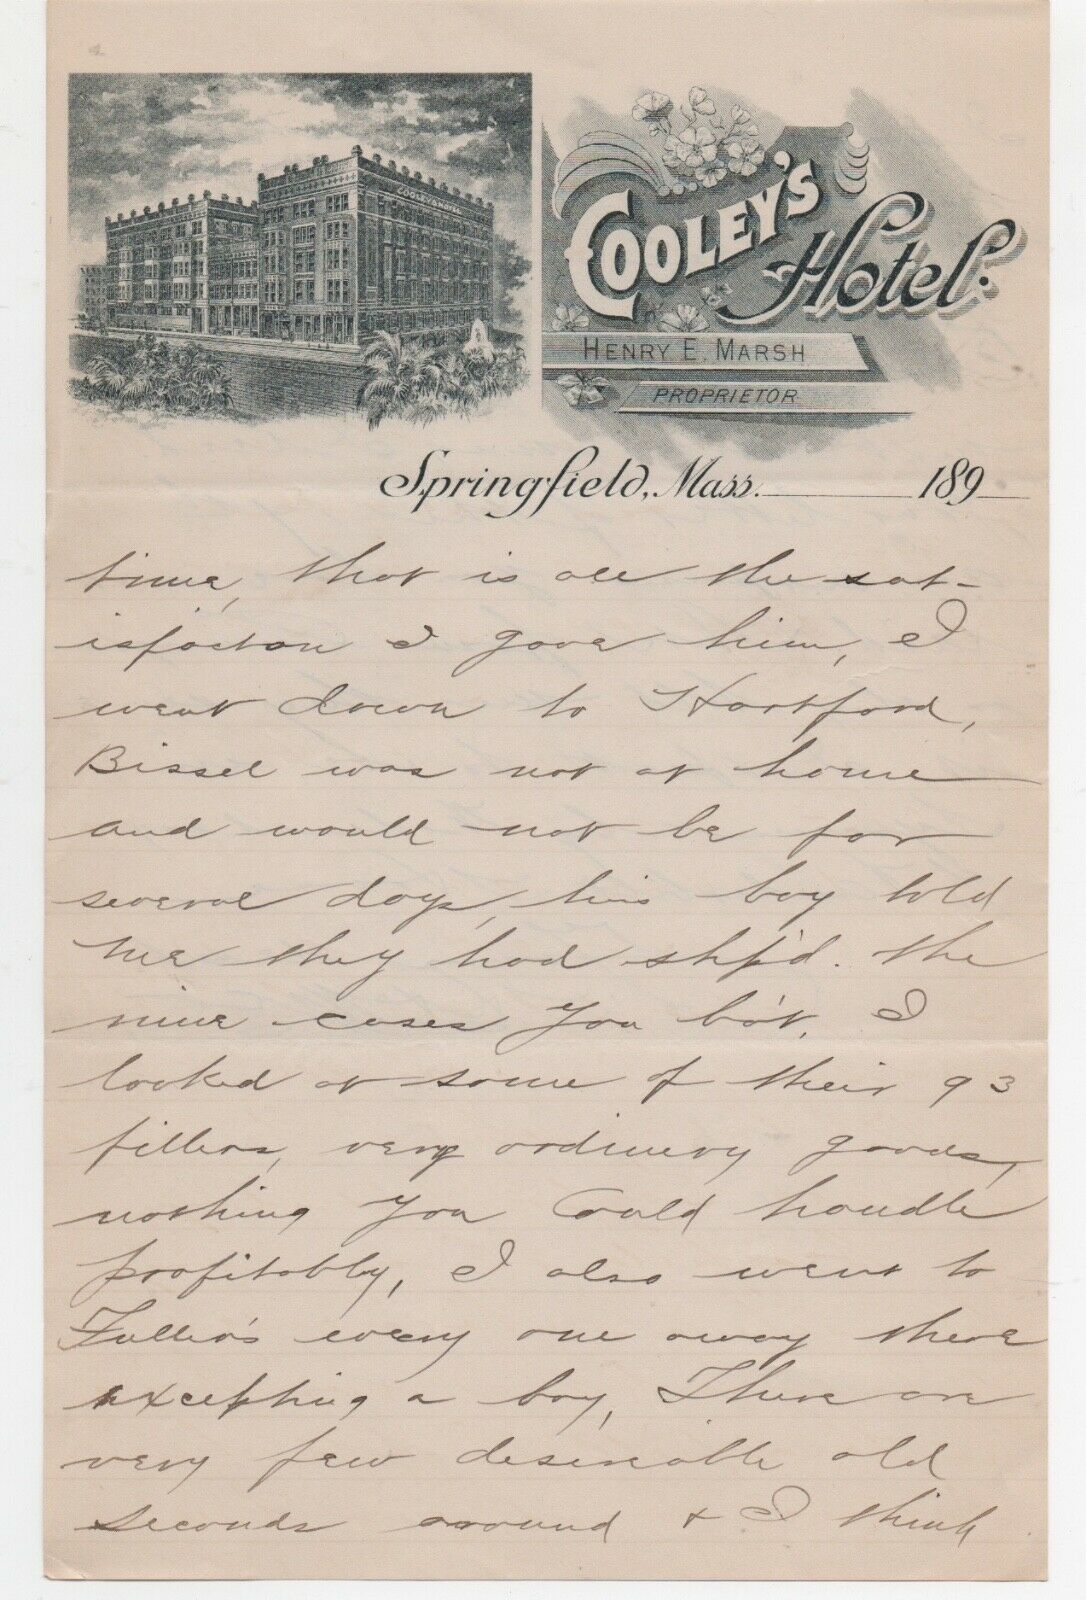 COOLEY'S HOTEL
COOLEY'S
Hotel.
HENRY E. MARSH
PROPRIETOR
Springfield, Mass. 189
time, that is all the sat-
isfacton I gave him, I
went down to Hartford,
Bissel was not at home
and would not be for
several days, his boy told
me they had shp'd. the
nine cases you bo't, I
looked at some of their 93
fillers, very ordinery goods,
nothing you Could handle
profitably, I also went to
Fuller's every one away there
excepting a boy, There are
very few desireable old
seconds around + I think